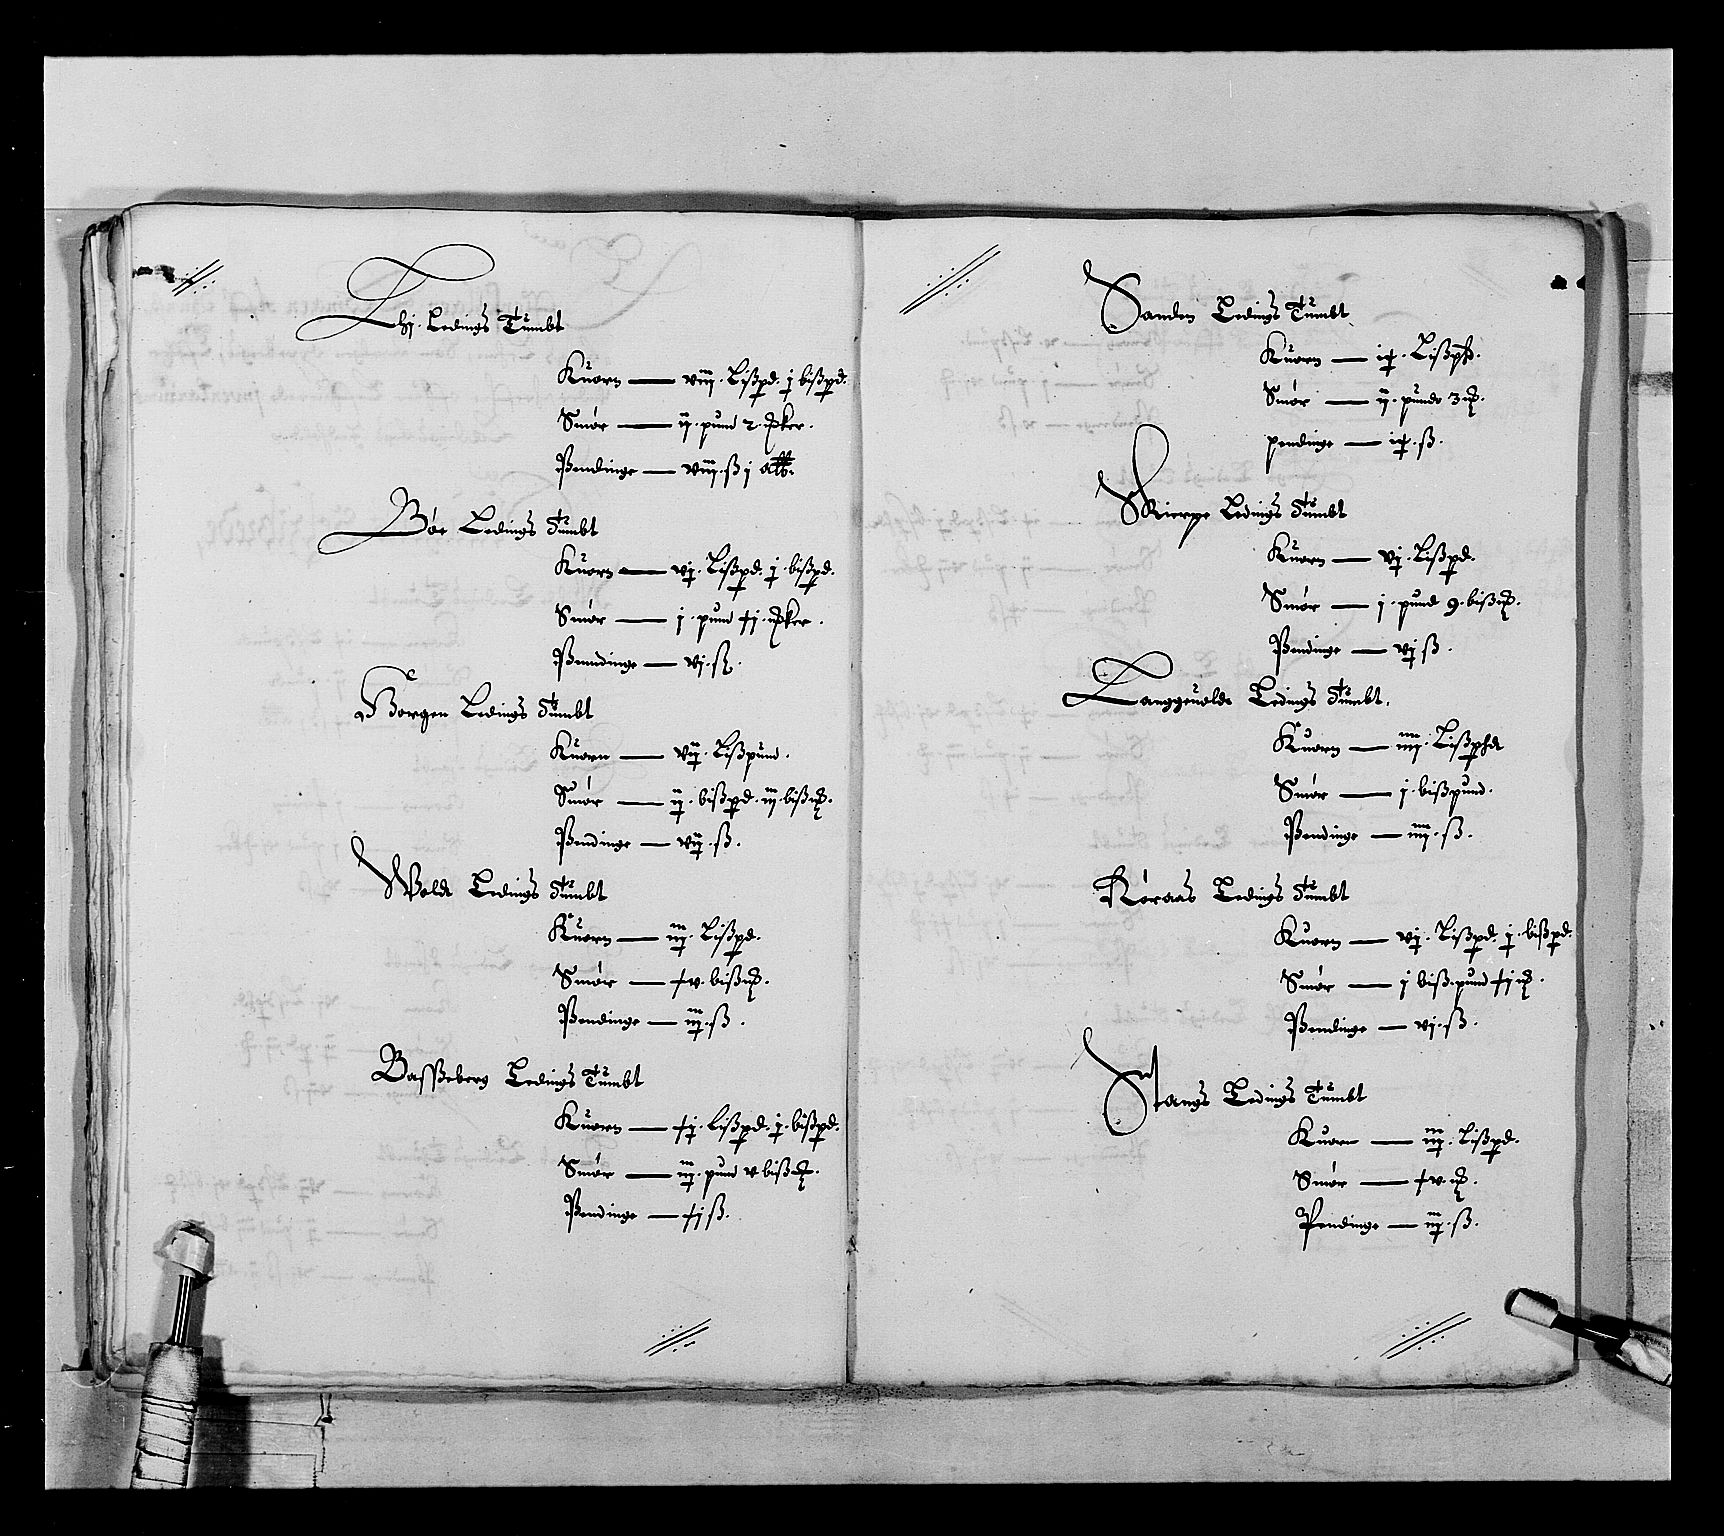 Lhj. Ledings Tumbt
Kuorn — viij. Lißpd. j bißpd.
Smør — ij. pund 2. mker.
Pendinge — viij. ß j alb.
Bøe Ledings Tumbt
Kuorn — vj. Lißpd. j. bißpd.
Smør — j. pund xj. mker.
Penndinge — vj. ß.
Borgen Ledings Tumbt
Kuorn — vij. Lißpund.
Smør — ij. bißpd. iij. bißm.
Pendinge — vij. ß.
Wold Ledings Tumbt
Kuorn — iij. Lißpd.
Smør — xv. bißm.
Pendinge — iij. ß.
Basßeberg Ledings Tumbt
Kuorn — xj. Lißpd. j. bißpd.
Smør — iij. pund v bißm.
Pendinge — xj ß.
Sanden Ledings Tumbt
Kuorn — ix. Lißpd.
Smør — ij. pund 3 m.
pendinge — ix. ß.
Skierpe Ledings Tumbt
Kuorn — vj. Lißpd.
Smør — j. pund 9. bißm.
Pendinge — vj ß.
Langgeuolde Ledings Tumbt.
Kuorn — iiij. Lißpd
Smør — j. bißpund.
Pendinge — iiij. ß.
Røraas Ledings Tumbt
Kuorn — vj. Lißpd. j. bißpd.
Smør — j bißpund xj m.
Pendinge — vj. ß.
Stangs Ledings Tumbt
Kuorn — iij. Lißpd.
Smør — xv. m.
Pendinge — iij. ß.